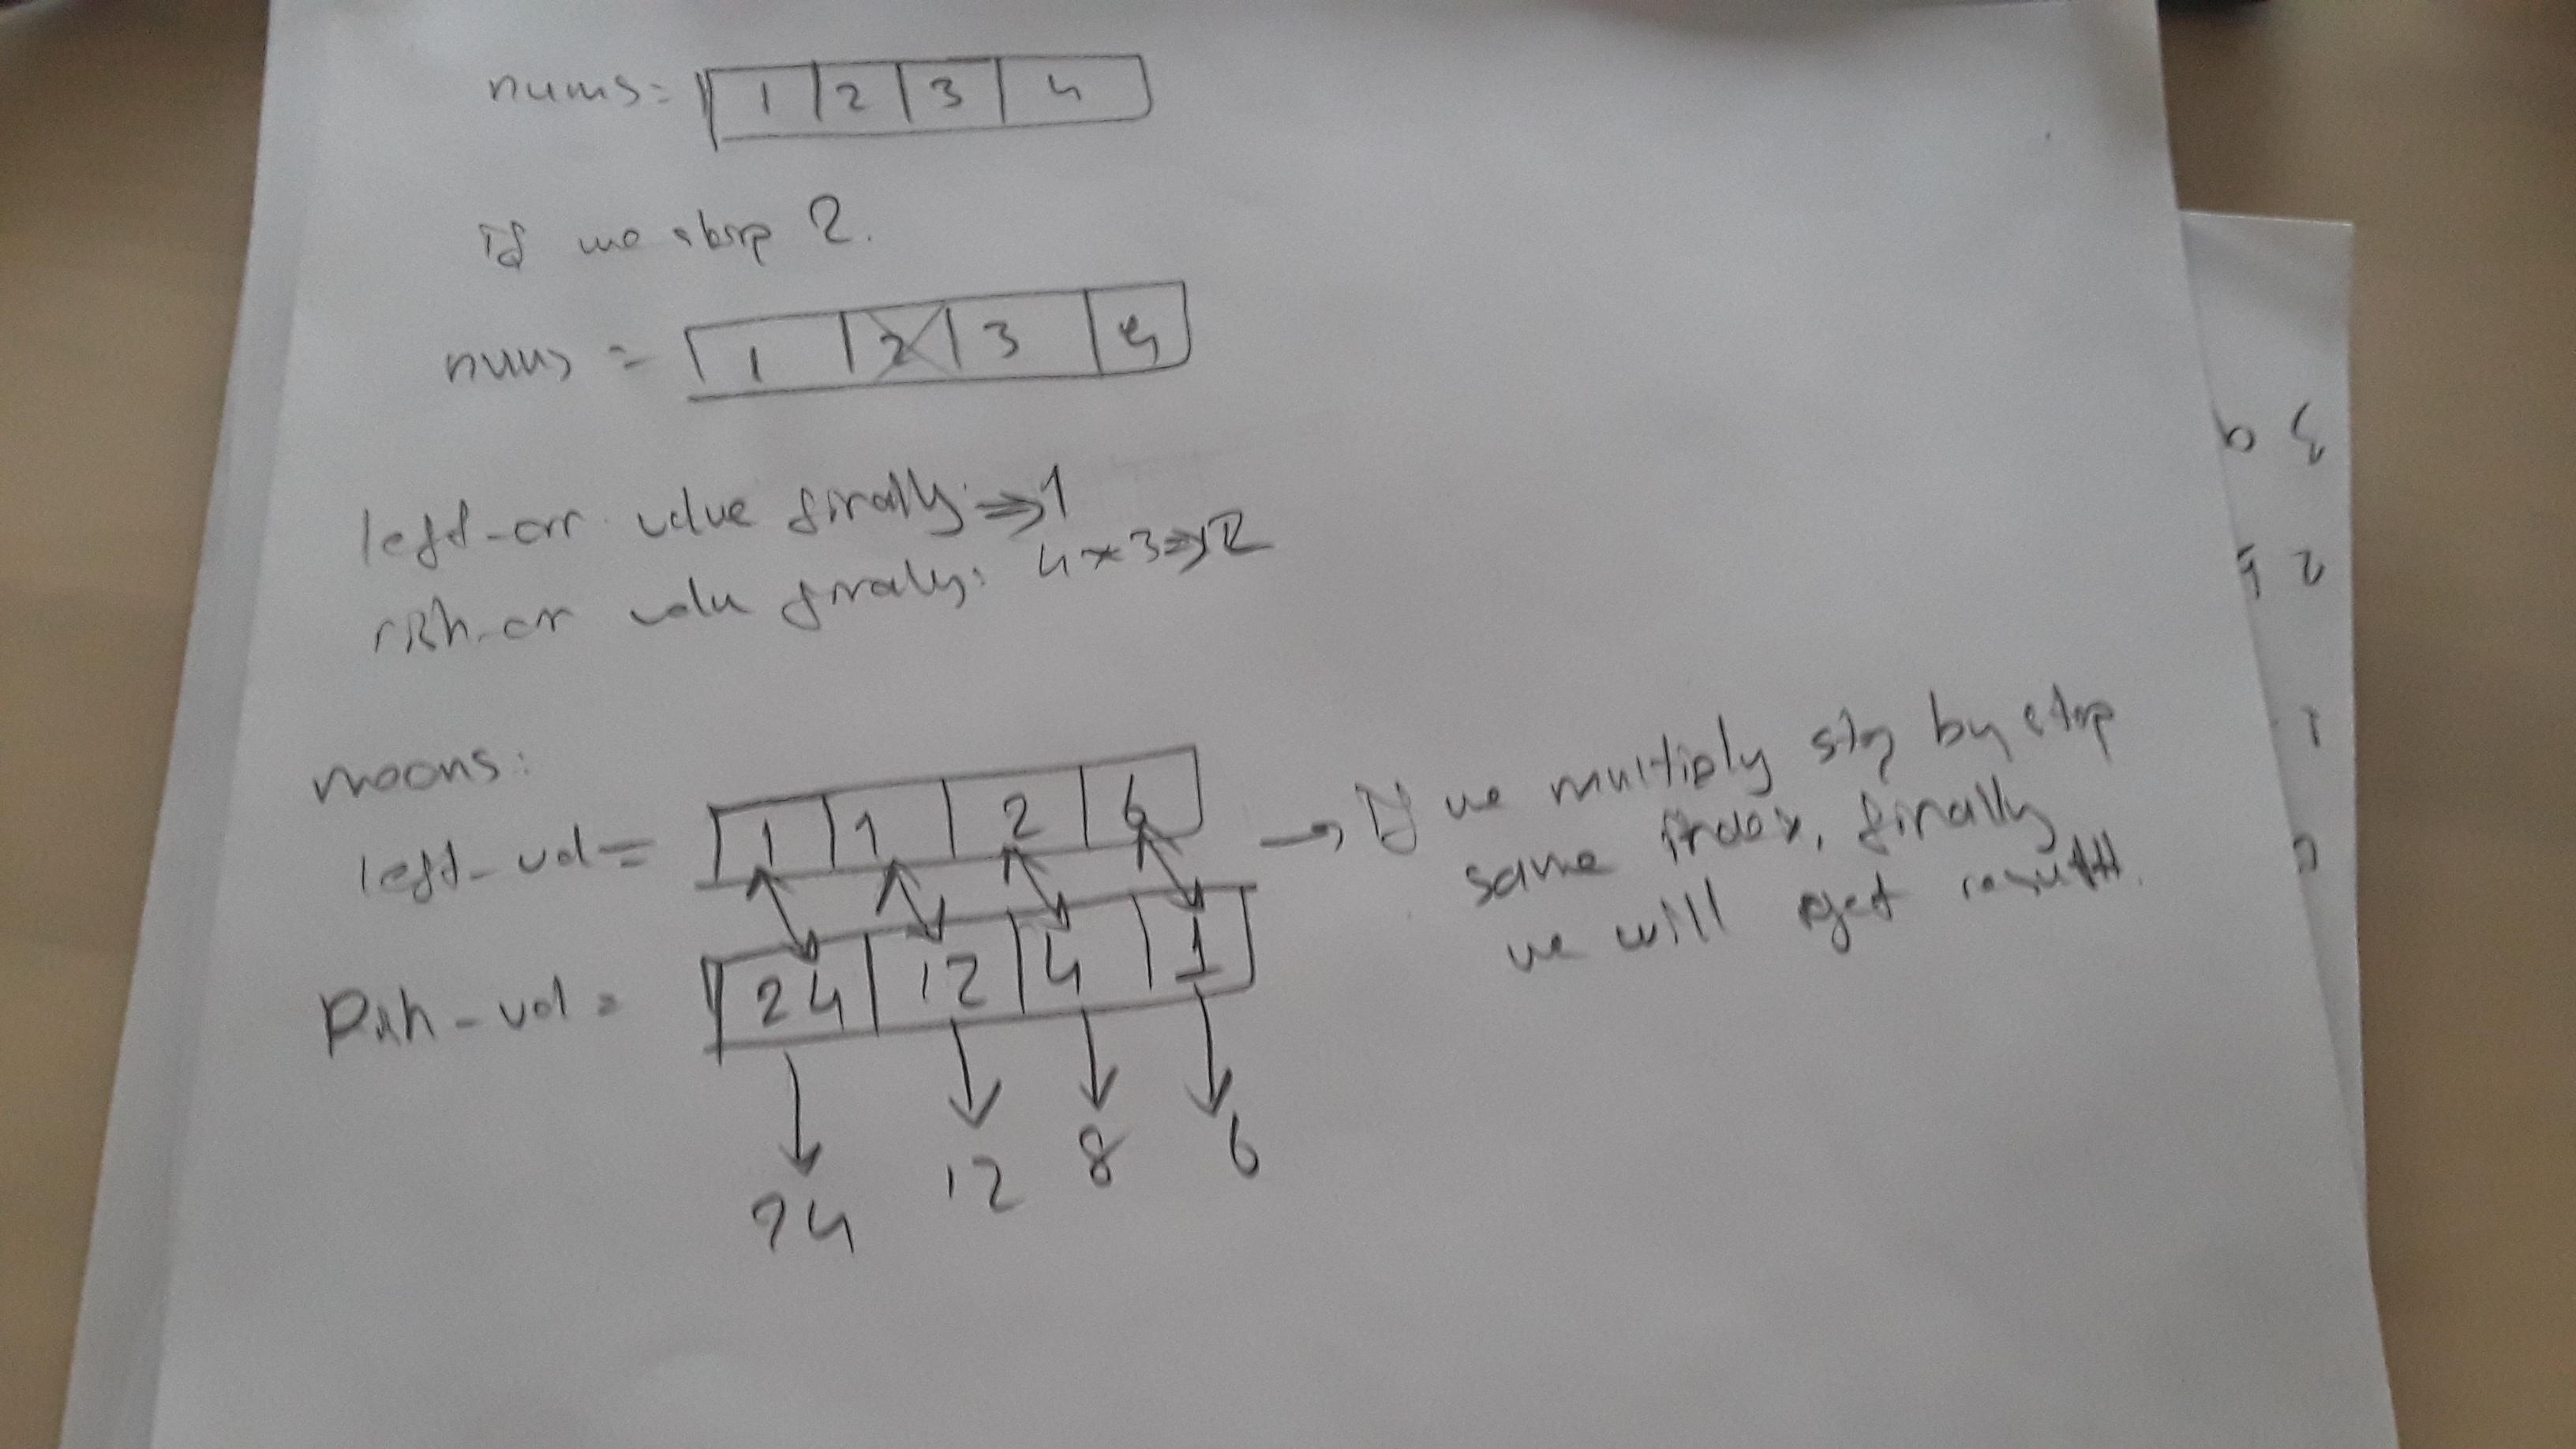 nums= 1 2 3 4
if we skip 2.
nums = 1 2 3 4
left-arr value finally: ⇒ 1
righ-arr valu finally: 4*3⇒12
means:
left-val= 1 1 2 6
Righ-val = 24 12 4 1
24 12 8 6
→ If we multiply step by step
same index, finally
we will get result.